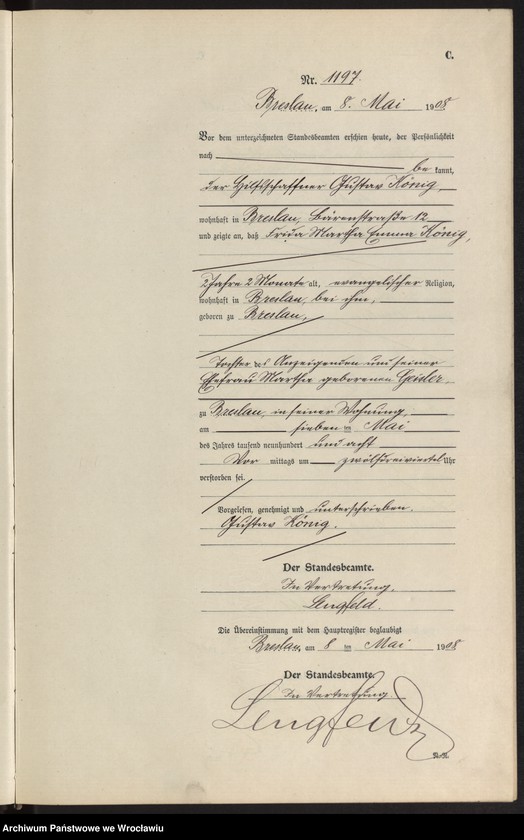 C.
Nr. 1197.
Breslau, am 8. Mai 1908
Vor dem unterzeichneten Standesbeamten erschien heute, der Persönlichkeit
nach be kannt,
der Hilfsschaffner Gustav König,
wohnhaft in Breslau, Bärenstraße 12
und zeigte an, daß Frida Martha Emma König,
2 Jahre 2 Monate alt, evangelischer Religion,
wohnhaft in Breslau, bei ihm,
geboren zu Breslau,
Tochter des Anzeigenden und seiner
Ehefrau Martha geborenen Geisler,
zu Breslau, in seiner Wohnung,
am sieben ten Mai
des Jahres tausend neunhundert und acht
Vor mittags um zwölfdreiviertel Uhr
verstorben sei.
Vorgelesen, genehmigt und unterschrieben.
Gustav König.
Der Standesbeamte.
In Vertretung.
Lengfeld.
Die Übereinstimmung mit dem Hauptregister beglaubigt
Breslau, am 8 ten Mai 1908
Der Standesbeamte.
In Vertretung.
Lengfeld
Archiwum Państwowe we Wrocławiu